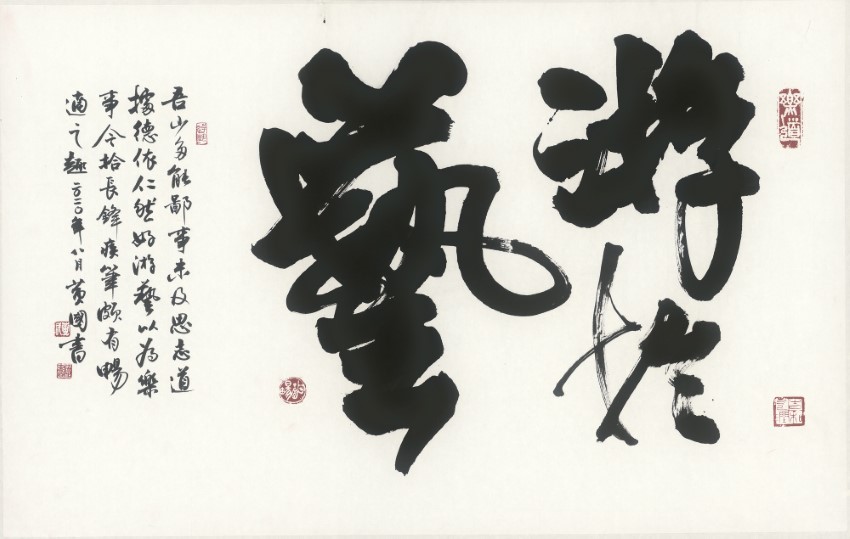 游於
藝
吾少多能鄙事未及思志道
據德依仁然好游藝以為樂
事今拾長鋒疾筆頗有暢
適之趣二〇二〇年八月黃國書
樂道